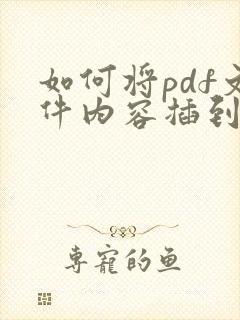 如何将pdf文
件内容插到
专宠的鱼